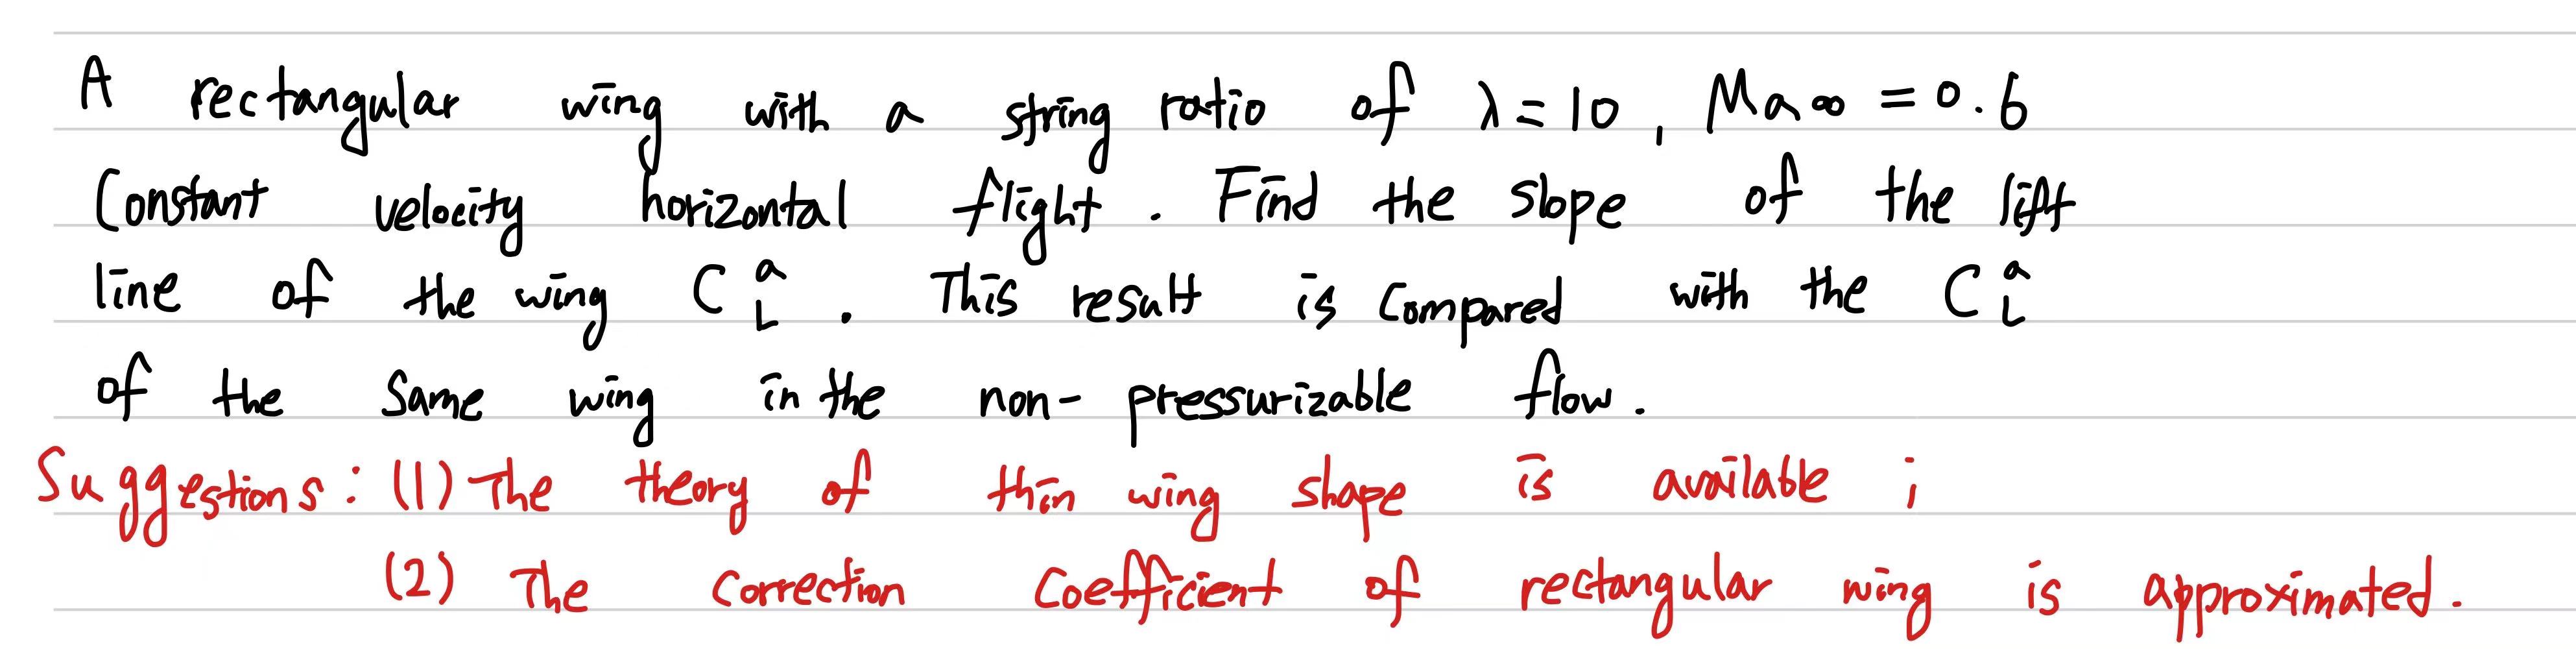 A rectangular wing with a string ratio of λ=10, Ma∞ =0.6
Constant velocity horizontal flight. Find the slope of the lift
line of the wing C_L^a. This result is compared with the C_L^a
of the same wing in the non-pressurizable flow.
Suggestions: (1) The theory of thin wing shape is available;
(2) The correction coefficient of rectangular wing is approximated.